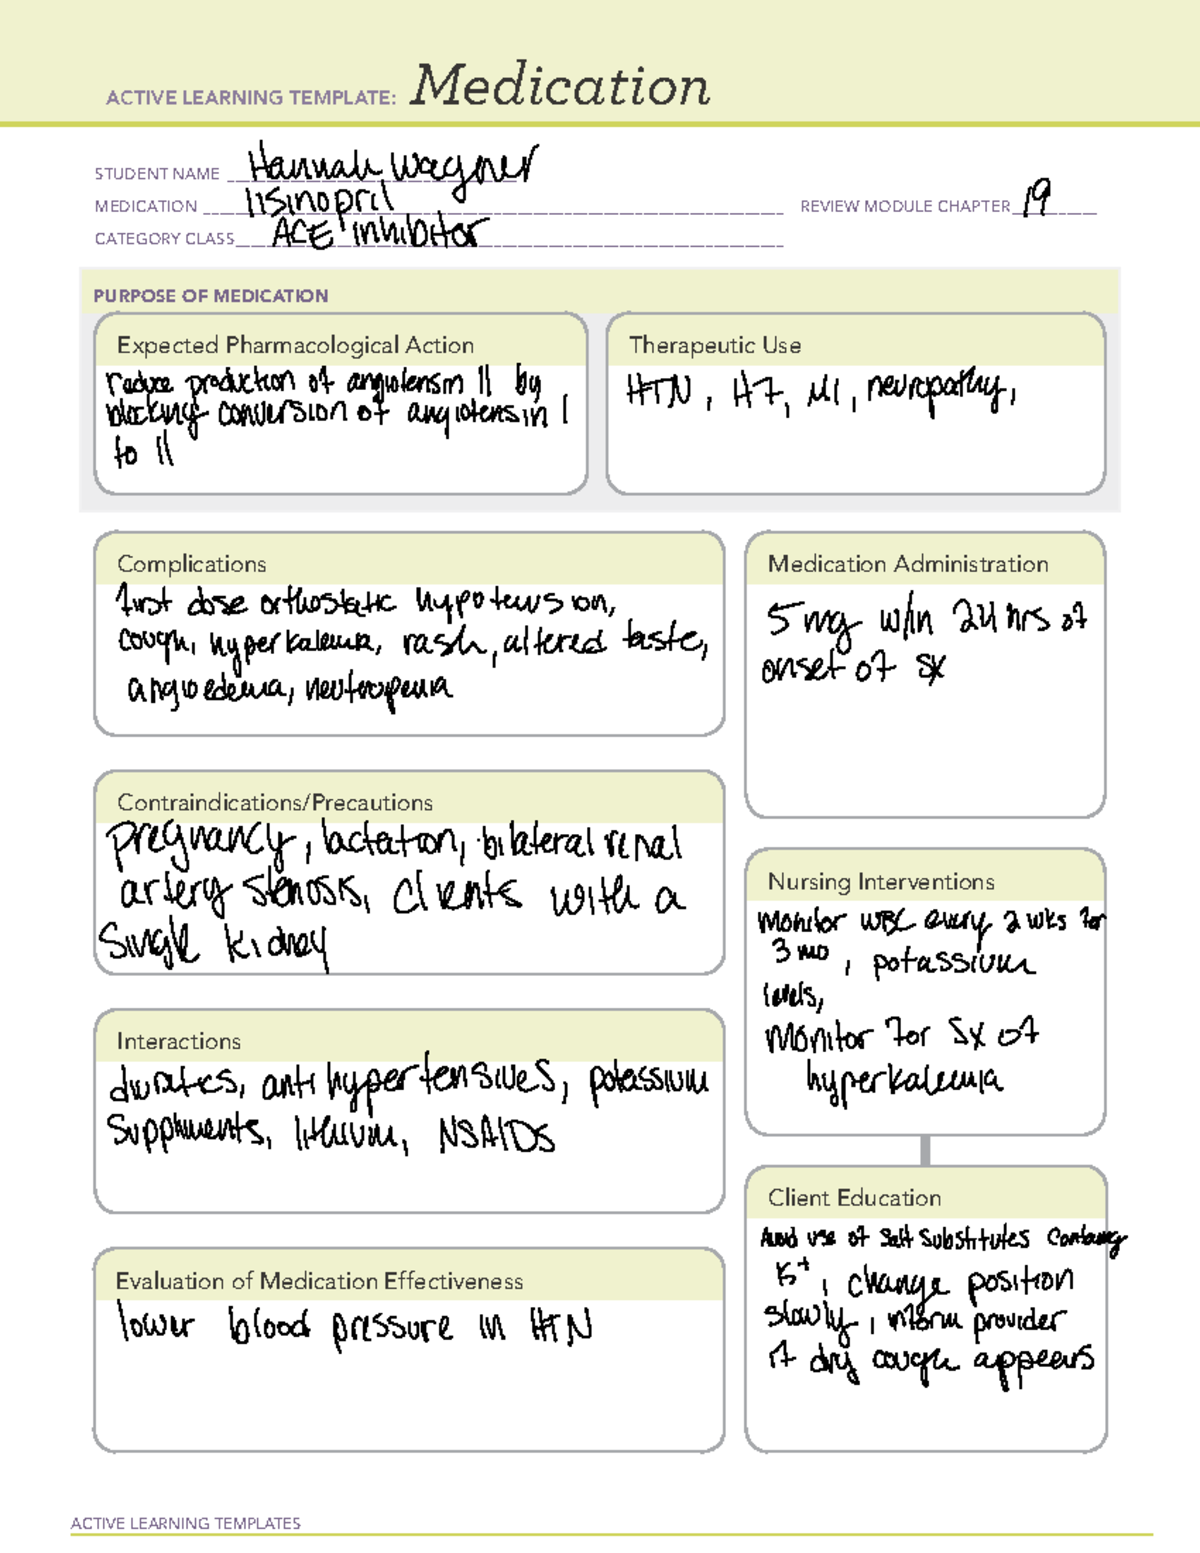 ACTIVE LEARNING TEMPLATE: Medication
STUDENT NAME Hannah Wagner
MEDICATION lisinopril REVIEW MODULE CHAPTER 19
CATEGORY CLASS ACE inhibitor
PURPOSE OF MEDICATION
Expected Pharmacological Action
reduce production of angiotensin II by
blocking conversion of angiotensin I
to II
Therapeutic Use
HTN, HF, MI, neuropathy,
Complications
first dose orthostatic hypotension,
cough, hyperkalemia, rash, altered taste,
angioedema, neutropenia
Medication Administration
5 mg w/in 24 hrs of
onset of sx
Contraindications/Precautions
pregnancy, lactation, bilateral renal
artery stenosis, clients with a
single kidney
Nursing Interventions
monitor WBC every 2 wks for
3 mo, potassium
levels,
monitor for sx of
hyperkalemia
Interactions
diuretics, antihypertensives, potassium
supplments, lithium, NSAIDS
Client Education
Avoid use of salt substitutes containg
K+, change position
slowly, inform provider
if dry cough appears
Evaluation of Medication Effectiveness
lower blood pressure in HTN
ACTIVE LEARNING TEMPLATES